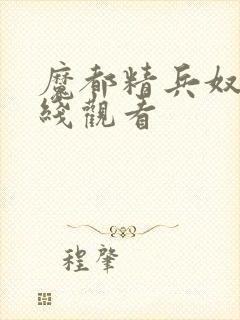 魔都精兵奴
綫觀看
程肇